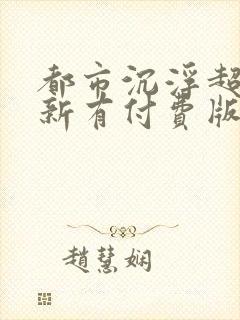 都市沉浮超
新有付费版
趙慧娴